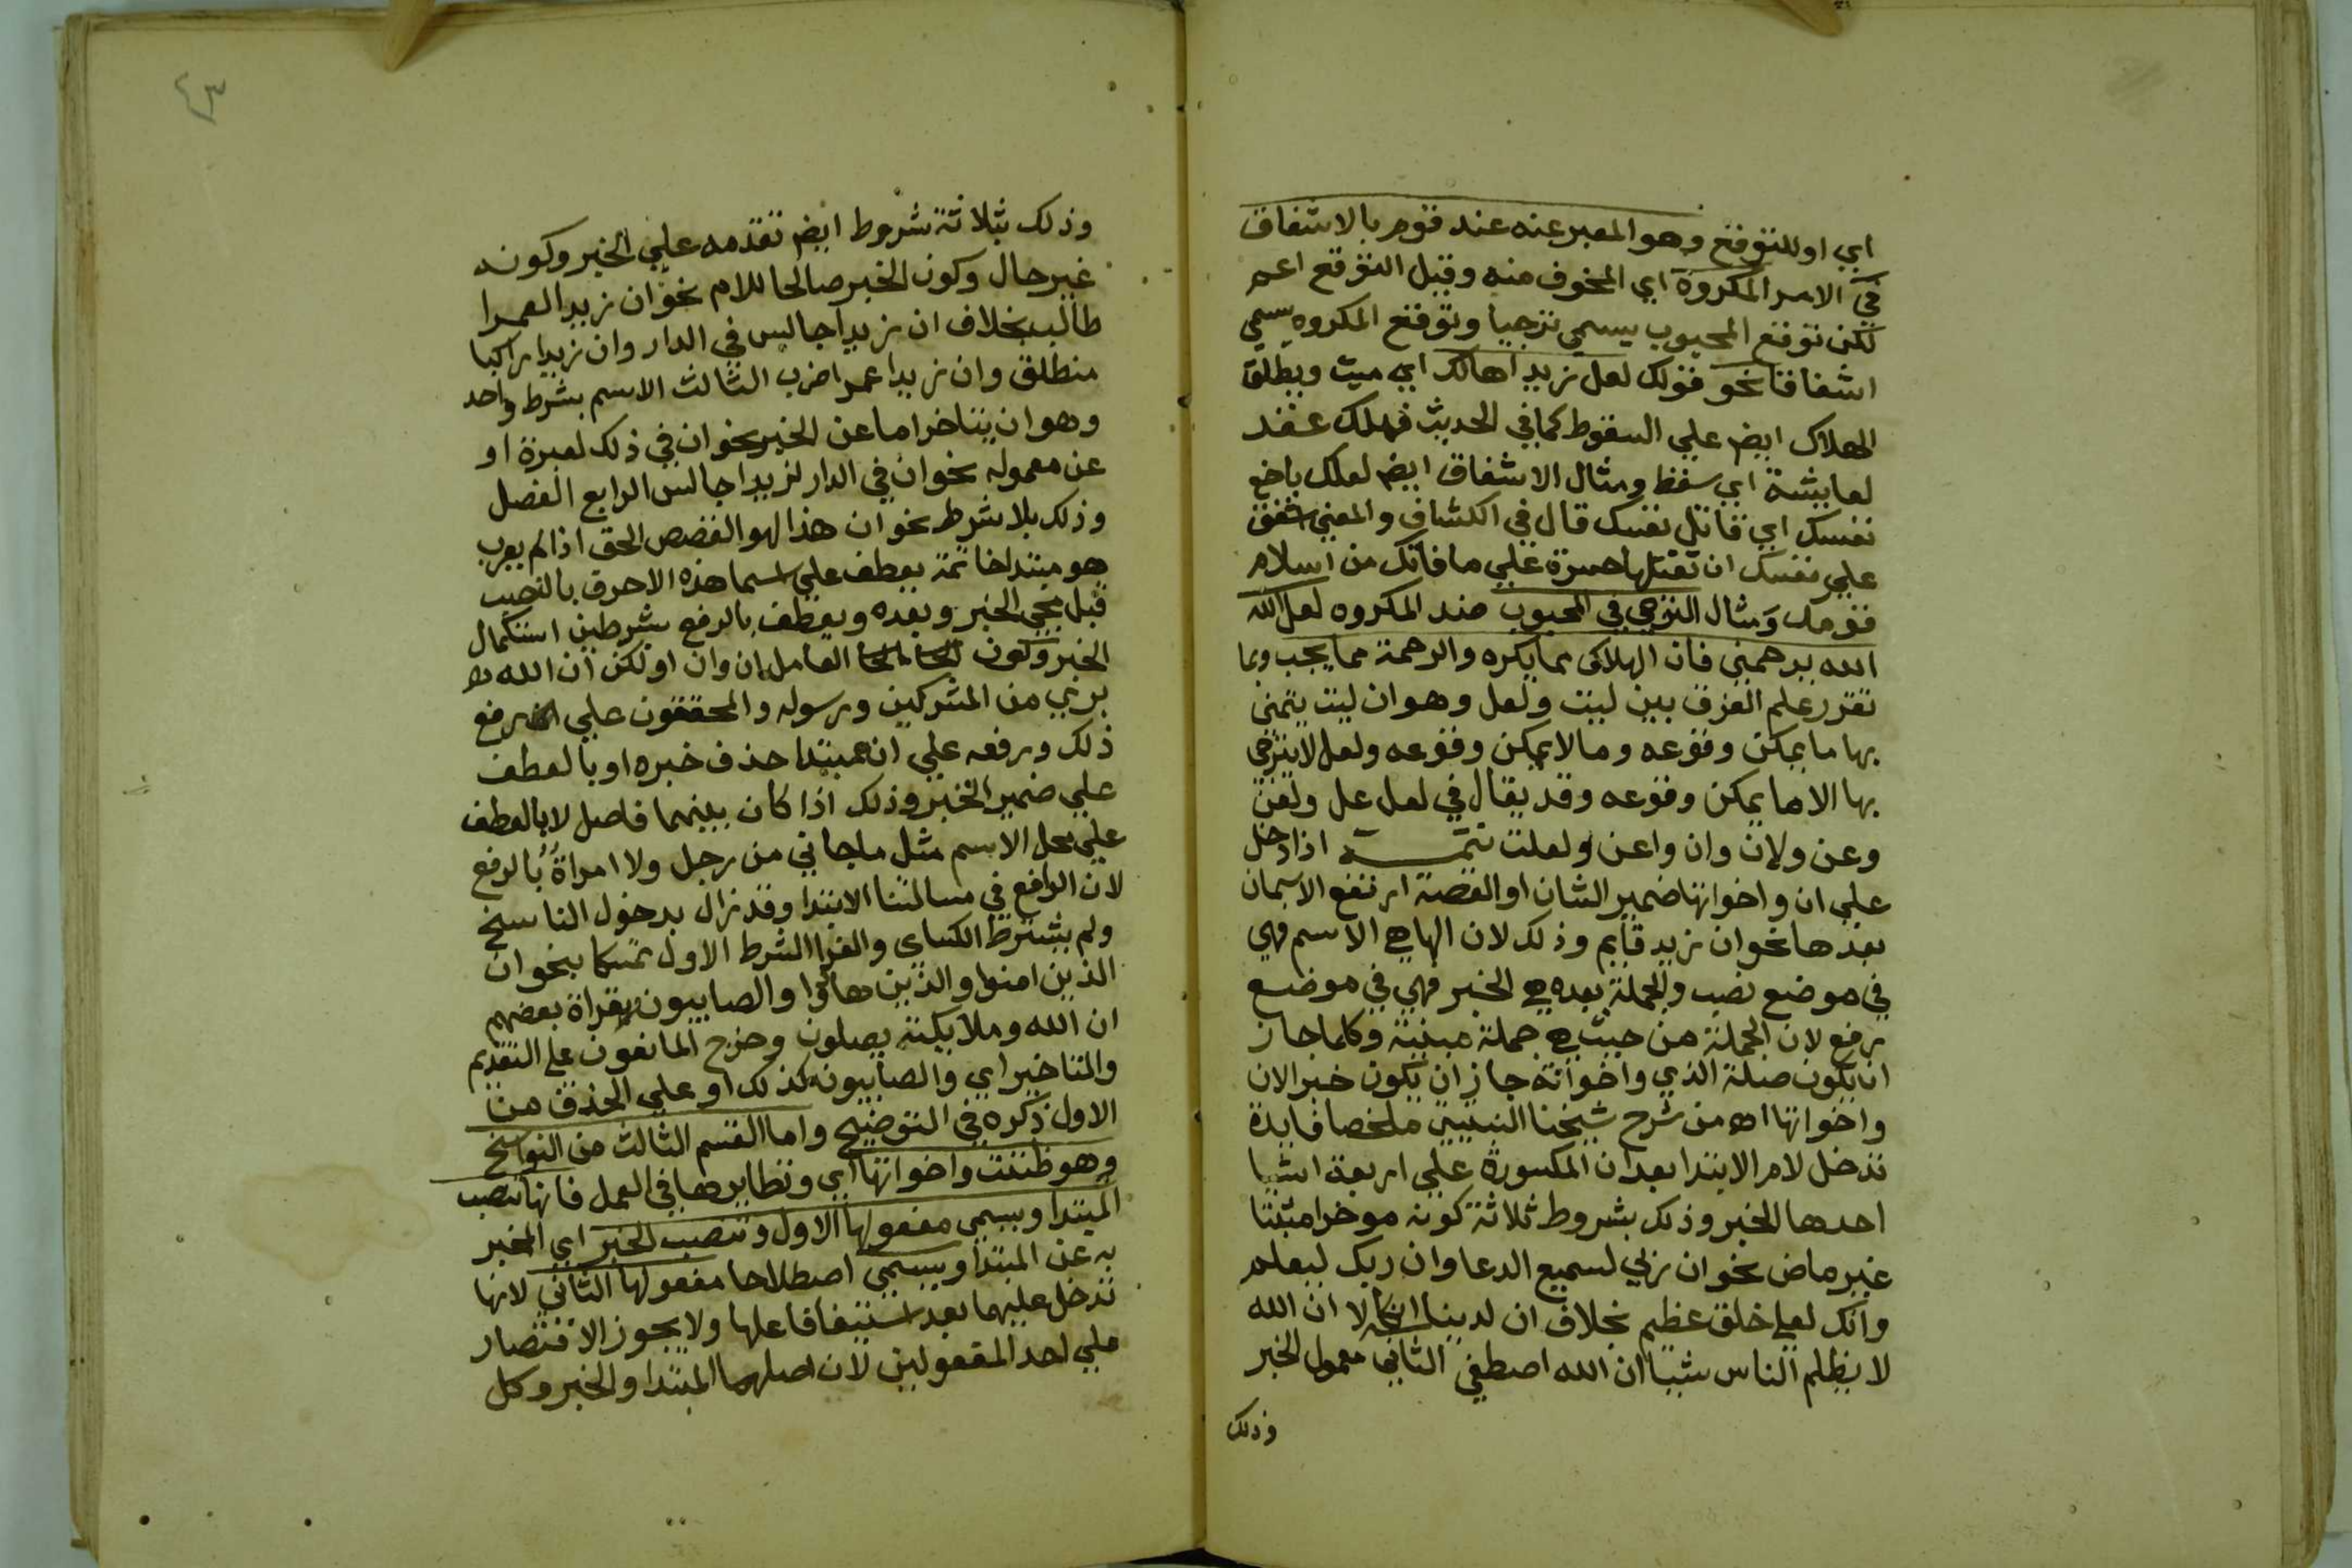 اي او للتوقع وهو المعبر عنه عند قوم بالاشفاق
في الامر المكروه اي المخوف منه وقيل التوقع اعم
لكن توقع المحبوب يسمي ترجيا وتوقع المكروه يسمي
اشفاقا نحو قولك لعل زيدا هالك اي ميت ويطلق
الهلاك ايض علي السقوط كما في الحديث فهلك عقد
لعايشة اي سقط ومثال الاشفاق ايض لعلك باخع
نفسك اي قاتل نفسك قال في الكشاف والمعني اشفق
علي نفسك ان تقتلها حسرة علي ما فاتك من اسلام
قومك ومثال الترجي في المحبوب ضد المكروه لعل الله
الله يرحمني فان الهلاك مما يكره والرحمة مما يحب وبما
تقرر علم الفرق بين ليت ولعل وهو ان ليت يتمني
بها ما يمكن وقوعه وما لا يمكن وقوعه ولعل لا يترجي
بها الا ما يمكن وقوعه وقد يقال في لعل عل ولعن
وعن ولان وان واعن ولعلت تتمة اذا دخل
علي ان واخواتها ضمير الشان او القصة ارتفع الاسمان
بعدها نحو انه زيد قايم وذلك لان الها هي الاسم فهي
في موضع نصب والجملة بعده هي الخبر فهي في موضع
رفع لان الجملة من حيث هي جملة مبنية وكلما جاز
ان تكون صلة الذي واخواته جاز ان تكون خبرا لان
واخواتها اه من شرح شيخنا النبتيتي ملخصا فايدة
تدخل لام الابتدا بعد ان المكسورة علي اربعة اشيا
احدها الخبر وذلك بشروط ثلاثة كونه موخرا مثبتا
غير ماض نحو ان ربي لسميع الدعا وان ربك ليعلم
وانك لعلي خلق عظيم بخلاف ان لدينا انكالا ان الله
لا يظلم الناس شيا ان الله اصطفي الثاني معمول الخبر
وذلك
٤٣
وذلك بثلاثة شروط ايض تقدمه علي الخبر وكونه
غير حال وكون الخبر صالحا للام نحو ان زيدا لعمرا
طالب بخلاف ان زيدا جالس في الدار وان زيدا راكبا
منطلق وان زيدا عمرا ضرب الثالث الاسم بشرط واحد
وهو ان يتاخر اما عن الخبر نحو ان في ذلك لعبرة او
عن معموله نحو ان في الدار لزيدا جالس الرابع الفصل
وذلك بلا شرط نحو ان هذا لهو القصص الحق اذا لم يعرب
هو مبتدا خاتمة يعطف علي اسما هذه الاحرف بالنصب
قبل مجي الخبر وبعده ويعطف بالرفع بشرطين استكمال
الخبر وكون العامل ان وان او لكن ان الله
بري من المشركين ورسوله والمحققون علي ان رفع
ذلك ورفعه علي انه مبتدا حذف خبره او بالعطف
علي ضمير الخبر وذلك اذا كان بينهما فاصل لا بالعطف
علي محل الاسم مثل ما جاني من رجل ولا امراة بالرفع
لان الرافع في مسالتنا الابتدا وقد زال بدخول الناسخ
ولم يشترط الكساي والفرا الشرط الاول تمسكا بنحو ان
الذين امنوا والذين هادوا والصابيون وبقراة بعضهم
ان الله وملايكته يصلون وخرج المانعون علي التقديم
والتاخير اي والصابيون كذلك او علي الحذف من
الاول ذكره في التوضيح واما القسم الثالث من النواسخ
وهو ظننت واخواتها اي ونظايرها في العمل فانها تنصب
المبتدا ويسمي مفعولها الاول وتنصب الخبر اي المخبر
به عن المبتدا ويسمي اصطلاحا مفعولها الثاني لانها
تدخل عليهما بعد استيفا فاعلها ولا يجوز الاقتصار
علي احد المفعولين لان اصلهما المبتدا والخبر وكل